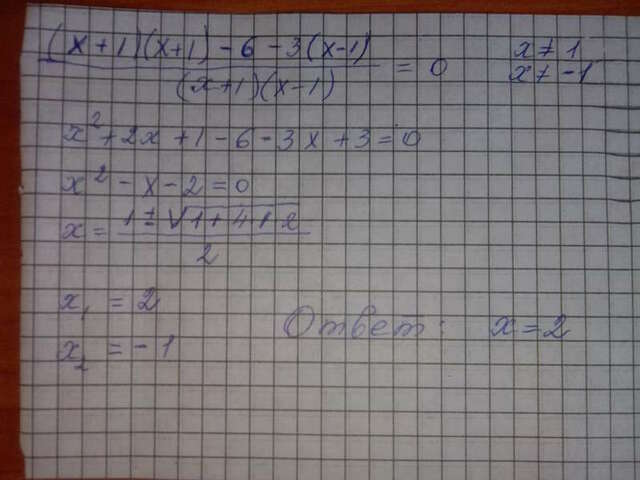 (x+1)(x+1)-6-3(x-1) / (x+1)(x-1) = 0
x ≠ 1
x ≠ -1
x²+2x+1-6-3x+3=0
x²-x-2=0
x = 1±√1+4·2 / 2
x₁ = 2
x₂ = -1
Ответ: x=2